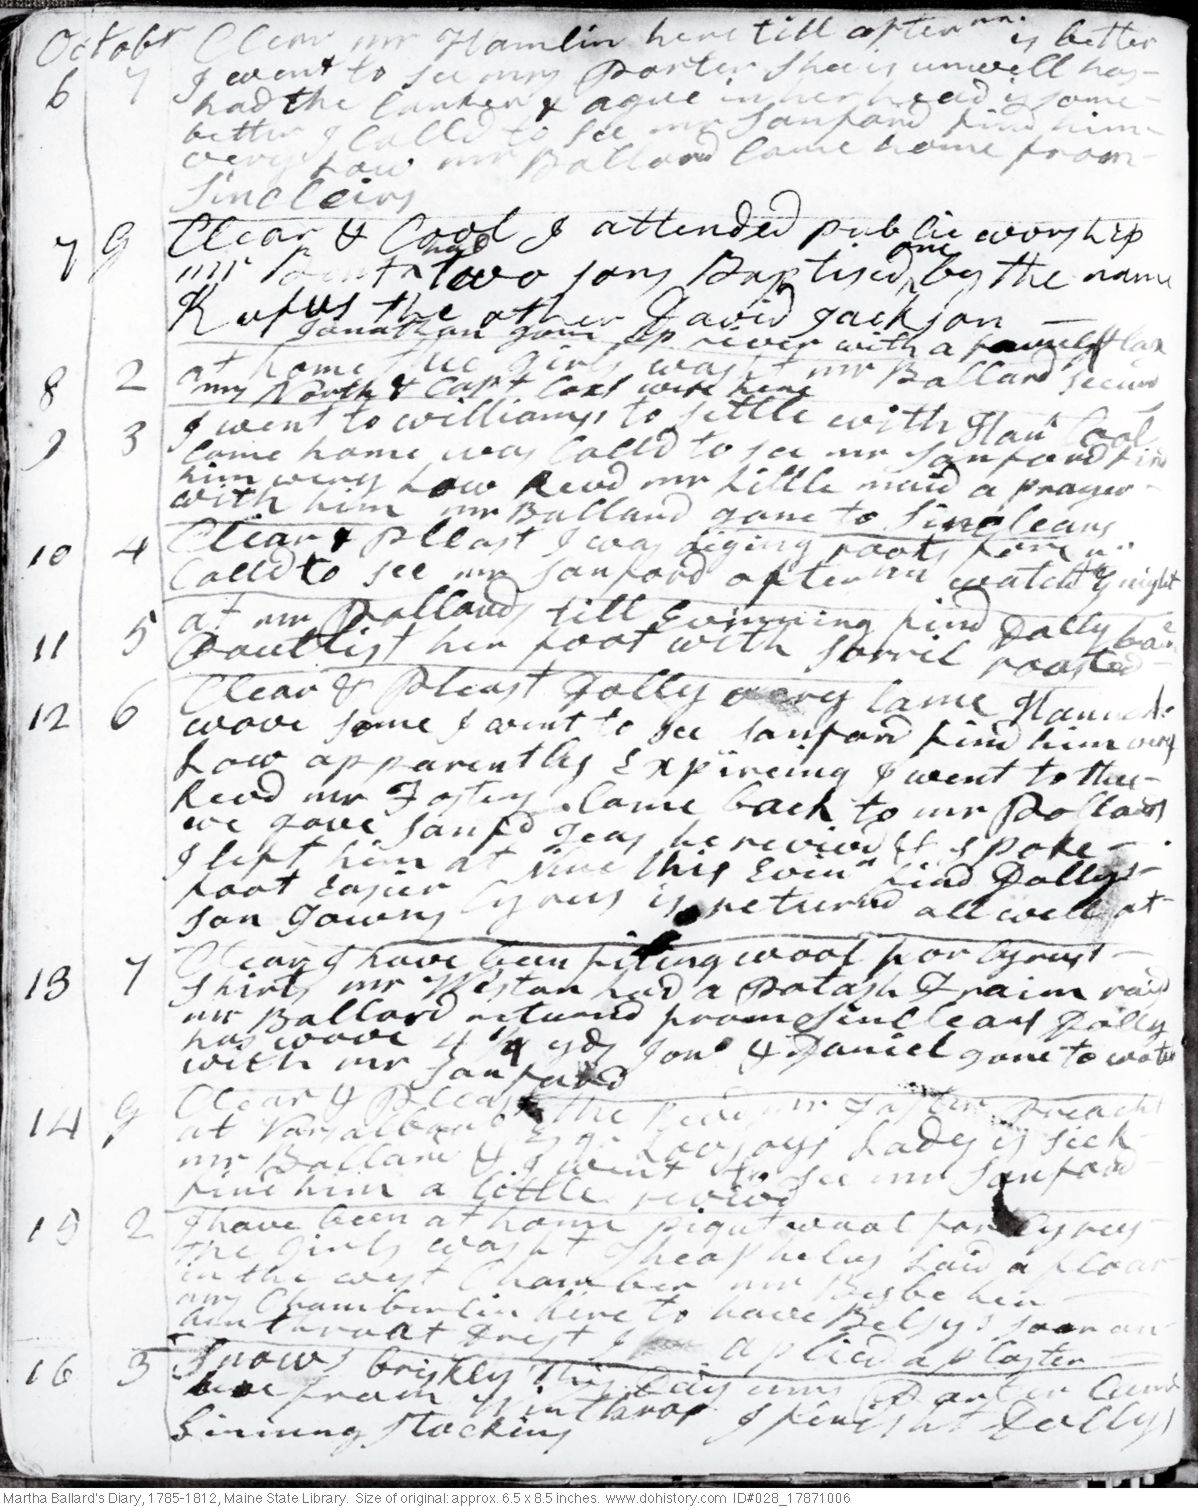 Octobr Clear mr Hamlin here till afternn. is better
6 7 I went to see mrs Porter Shee is unwell has
had the Canker & ague in her head is some
better I Calld to see mr Sanford find him
very low mr Ballard Came home from
Sincleirs
7 g Clear & Cool I attended public worship
mr Bent had two sons Baptised one by the name
Rufus the other David Jackson
Jonathan gone up river with a
8 2 at home the girls washt mr Ballard
mrs North & Capt Coxs wife here
9 3 I went to williams to settle with Han Cool
Came home was Calld to see mr Sanford find
him very low Revd mr Little maid a prayer
with him mr Ballard gone to Sinclears
10 4 Clear & Pleast I was diging roots
Calld to see mr Sanford afternn watcht night
11 5 at mr Pollards till Evinning find Dolly
Poultist her foot with sorril roasted
12 6 Clear & Pleast Dolly very lame Hannah
wove some I went to see sanford find him very
Low apparently Expireing I went to the
Revd mr Fosters Came back to mr Pollards
we gave Sanfd he revivd & spoke
I left him at Nine this Evenn find Dollys
foot Easier Cyrus is returnd all well at
son Towns
13 7 Clear I have been fiting wool for Cyrus
Shirts mr Weston had a Potash Fraim raisd
mr Ballard returnd from Sinclears Dolly
has wove 4 1/4 yds Jona & Daniel gone to watch
with mr Sanford
14 g Clear & Pleast the Revd mr Foster preacht
at Vassalboro Esqr Lovjoys Lady is sick
mr Ballard & I went to see mr Sanford
find him a little revivd
15 2 I have been at home piqut wool for Cyrus
the girls washt Laid a floar
in the west Chamber mr Besbe here
mrs Chamberlin here to have Betsys soar on
throat Drest I aplied a plaster
16 3 Snows briskly this Day mrs Parker Came
here from Winthrop I Dollys
Linning Stockins
Martha Ballard's Diary, 1785-1812, Maine State Library. Size of original: approx. 6.5 x 8.5 inches. www.dohistory.com ID#028_17871006